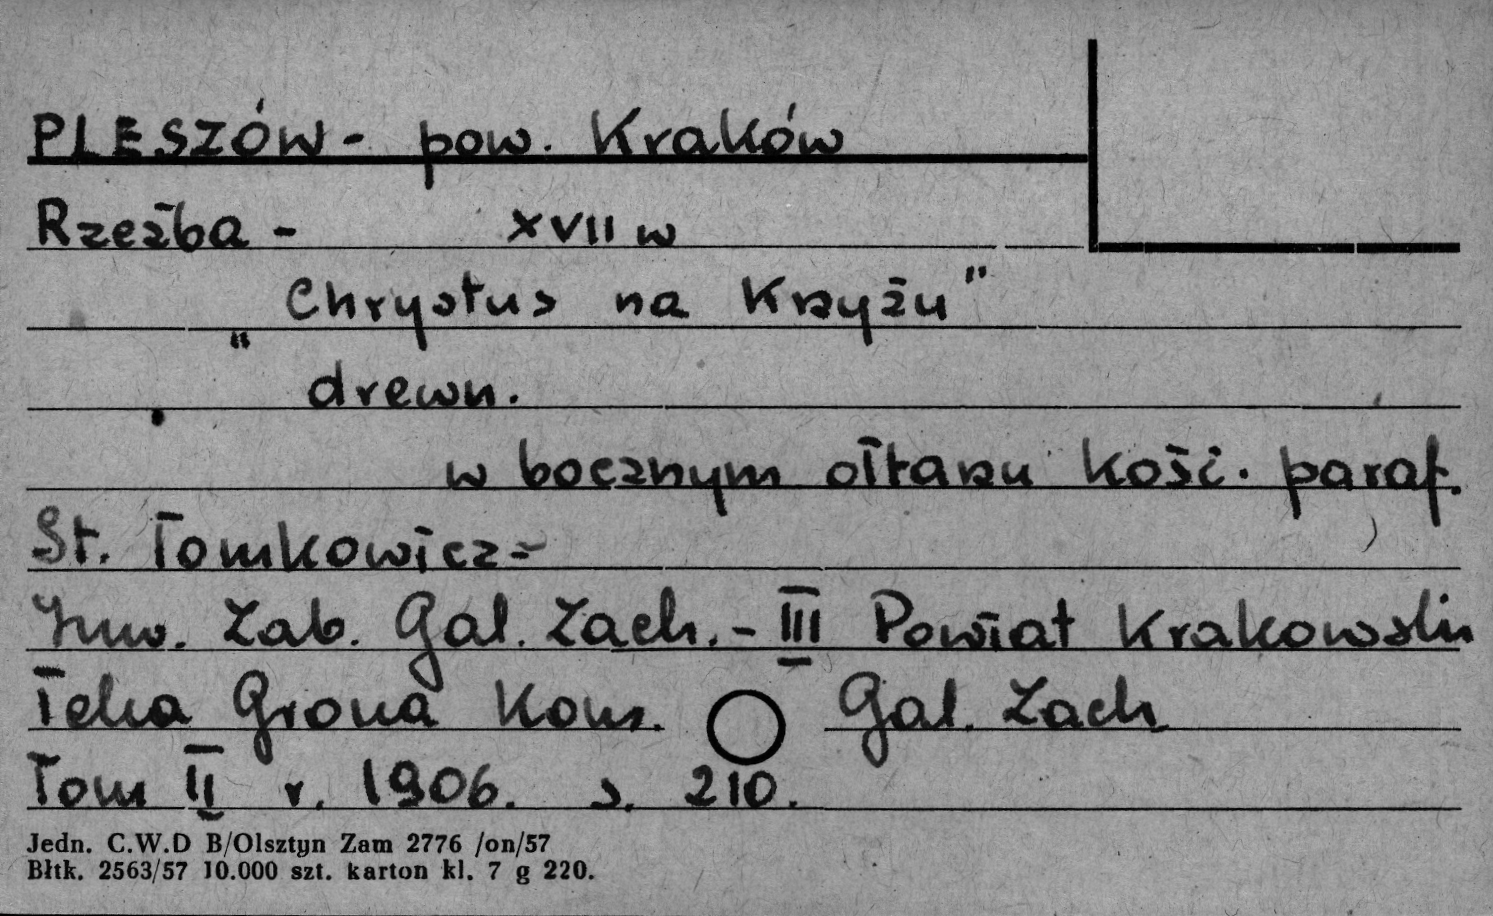 PLESZÓW - pow. Kraków
Rzeźba - XVII w
„Chrystus na Krzyżu"
drewn.
w bocznym ołtarzu kość. paraf.
St. Tomkowicz -
Inw. Zab. Gal. Zach. - III Powiat Krakowski
Teka Grona Kons. Gal. Zach
Tom II r. 1906. s. 210.
Jedn. C.W.D B/Olsztyn Zam 2776 /on/57
Błtk. 2563/57 10.000 szt. karton kl. 7 g 220.